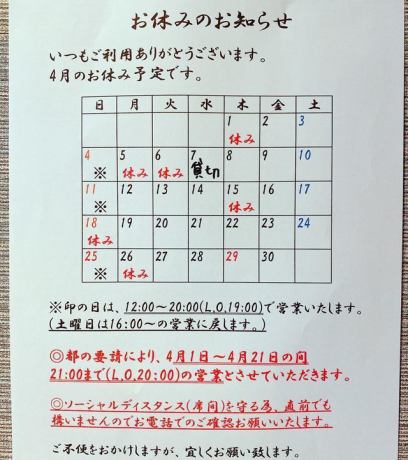 お休みのお知らせ
いつもご利用ありがとうございます。
4月のお休み予定です。
日 月 火 水 木 金 土
1 2 3
休み
4 5 6 7 8 9 10
※ 休み 休み 貸切
11 12 13 14 15 16 17
※ 休み
18 19 20 21 22 23 24
休み
25 26 27 28 29 30
※ 休み
※印の日は、12:00~20:00(L,O,19:00)で営業いたします。
(土曜日は16:00~の営業に戻します。)
◎都の要請により、4月1日~4月21日の間
21:00まで(L,O,20:00)の営業とさせていただきます。
◎ソーシャルディスタンス(席間)を守る為、直前でも
構いませんのでお電話でのご確認お願いいたします。
ご不便をおかけしますが、宜しくお願い致します。